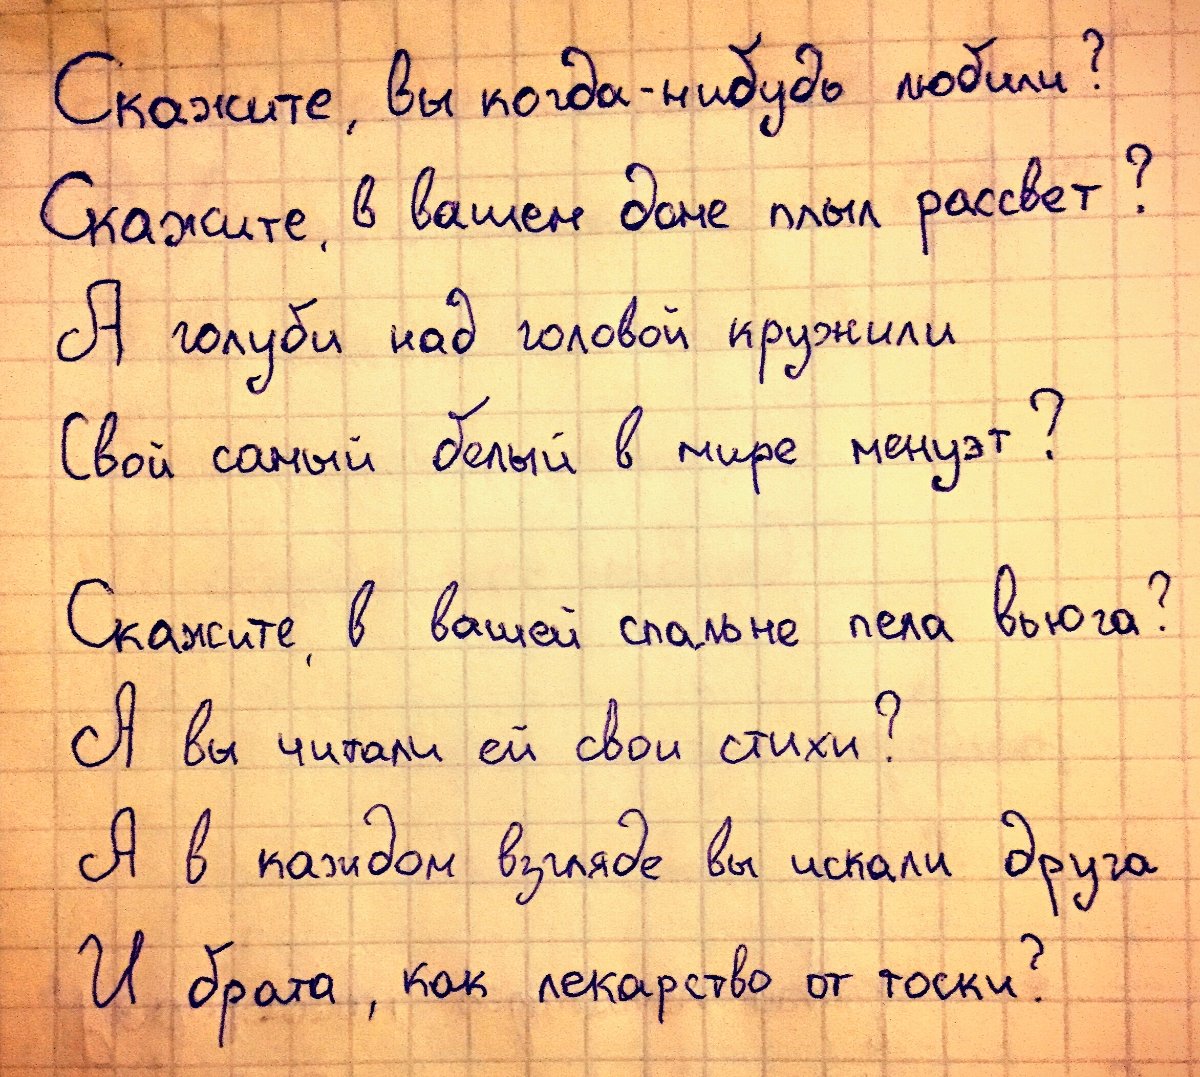 Скажите, вы когда-нибудь любили?
Скажите, в вашем доме плыл рассвет?
А голуби над головой кружили
Свой самый белый в мире менуэт?
Скажите, в вашей спальне пела вьюга?
А вы читали ей свои стихи?
А в каждом взгляде вы искали друга
И брата, как лекарство от тоски?